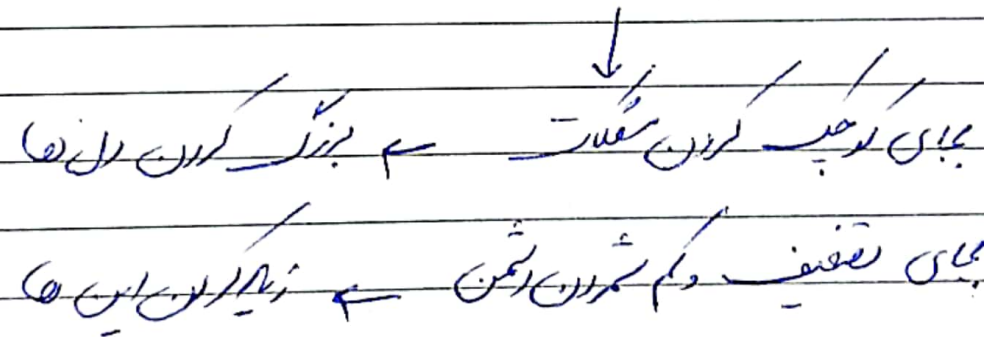 بجای کوچک کردن مشکلات ← بزرگ کردن دل ها
بجای تضعیف و کم شمردن دشمن ← زیاد کردن این ها